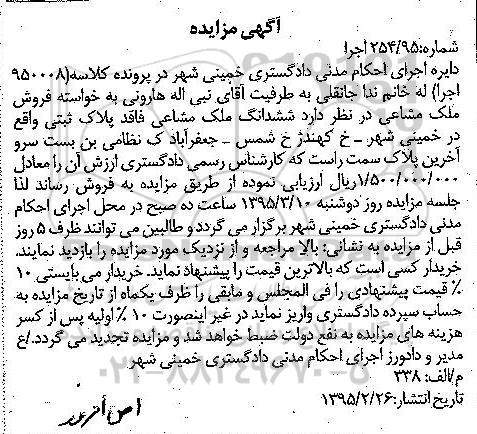 آگهی مزایده
شماره: ۲۵۴/۹۵ اجرا
دایره اجرای احکام مدنی دادگستری خمینی شهر در پرونده کلاسه(۹۵۰۰۰۸
اجرا) له خانم ندا جانقلی به طرفیت آقای نبی اله هارونی به خواسته فروش
ملک مشاعی در نظر دارد ششدانگ ملک مشاعی فاقد پلاک ثبتی واقع
در خمینی شهر ـ خ کهندژ خ شمس ـ جعفرآباد ک نظامی بن بست سرو
آخرین پلاک سمت راست که کارشناس رسمی دادگستری ارزش آن را معادل
۱/۵۰۰/۰۰۰/۰۰۰ریال ارزیابی نموده از طریق مزایده به فروش رساند لذا
جلسه مزایده روز دوشنبه ۱۳۹۵/۳/۱۰ ساعت ده صبح در محل اجرای احکام
مدنی دادگستری خمینی شهر برگزار می گردد و طالبین می توانند ظرف ۵ روز
قبل از مزایده به نشانی: بالا مراجعه و از نزدیک مورد مزایده را بازدید نمایند.
خریدار کسی است که بالاترین قیمت را پیشنهاد نماید. خریدار می بایستی ۱۰
٪ قیمت پیشنهادی را فی المجلس و مابقی را ظرف یکماه از تاریخ مزایده به
حساب سپرده دادگستری واریز نماید در غیر اینصورت ۱۰ ٪ اولیه پس از کسر
هزینه های مزایده به نفع دولت ضبط خواهد شد و مزایده تجدید می گردد./ع
مدیر و دادورز اجرای احکام مدنی دادگستری خمینی شهر
م/الف: ۳۳۸
۰۲۱-۸۸۳۴۹۶۷۰-۵
تاریخ انتشار: ۱۳۹۵/۲/۲۶